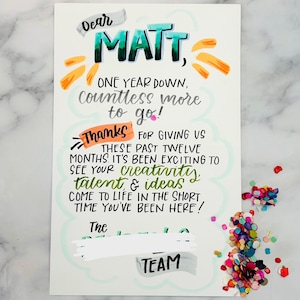 Dear
MATT,
ONE YEAR DOWN,
countless more
to go!
Thanks FOR GIVING US
THESE PAST TWELVE
MONTHS. IT'S BEEN EXCITING TO
SEE YOUR creativity
talent & ideas
COME TO LIFE IN THE SHORT
TIME YOU'VE BEEN HERE!
The
TEAM